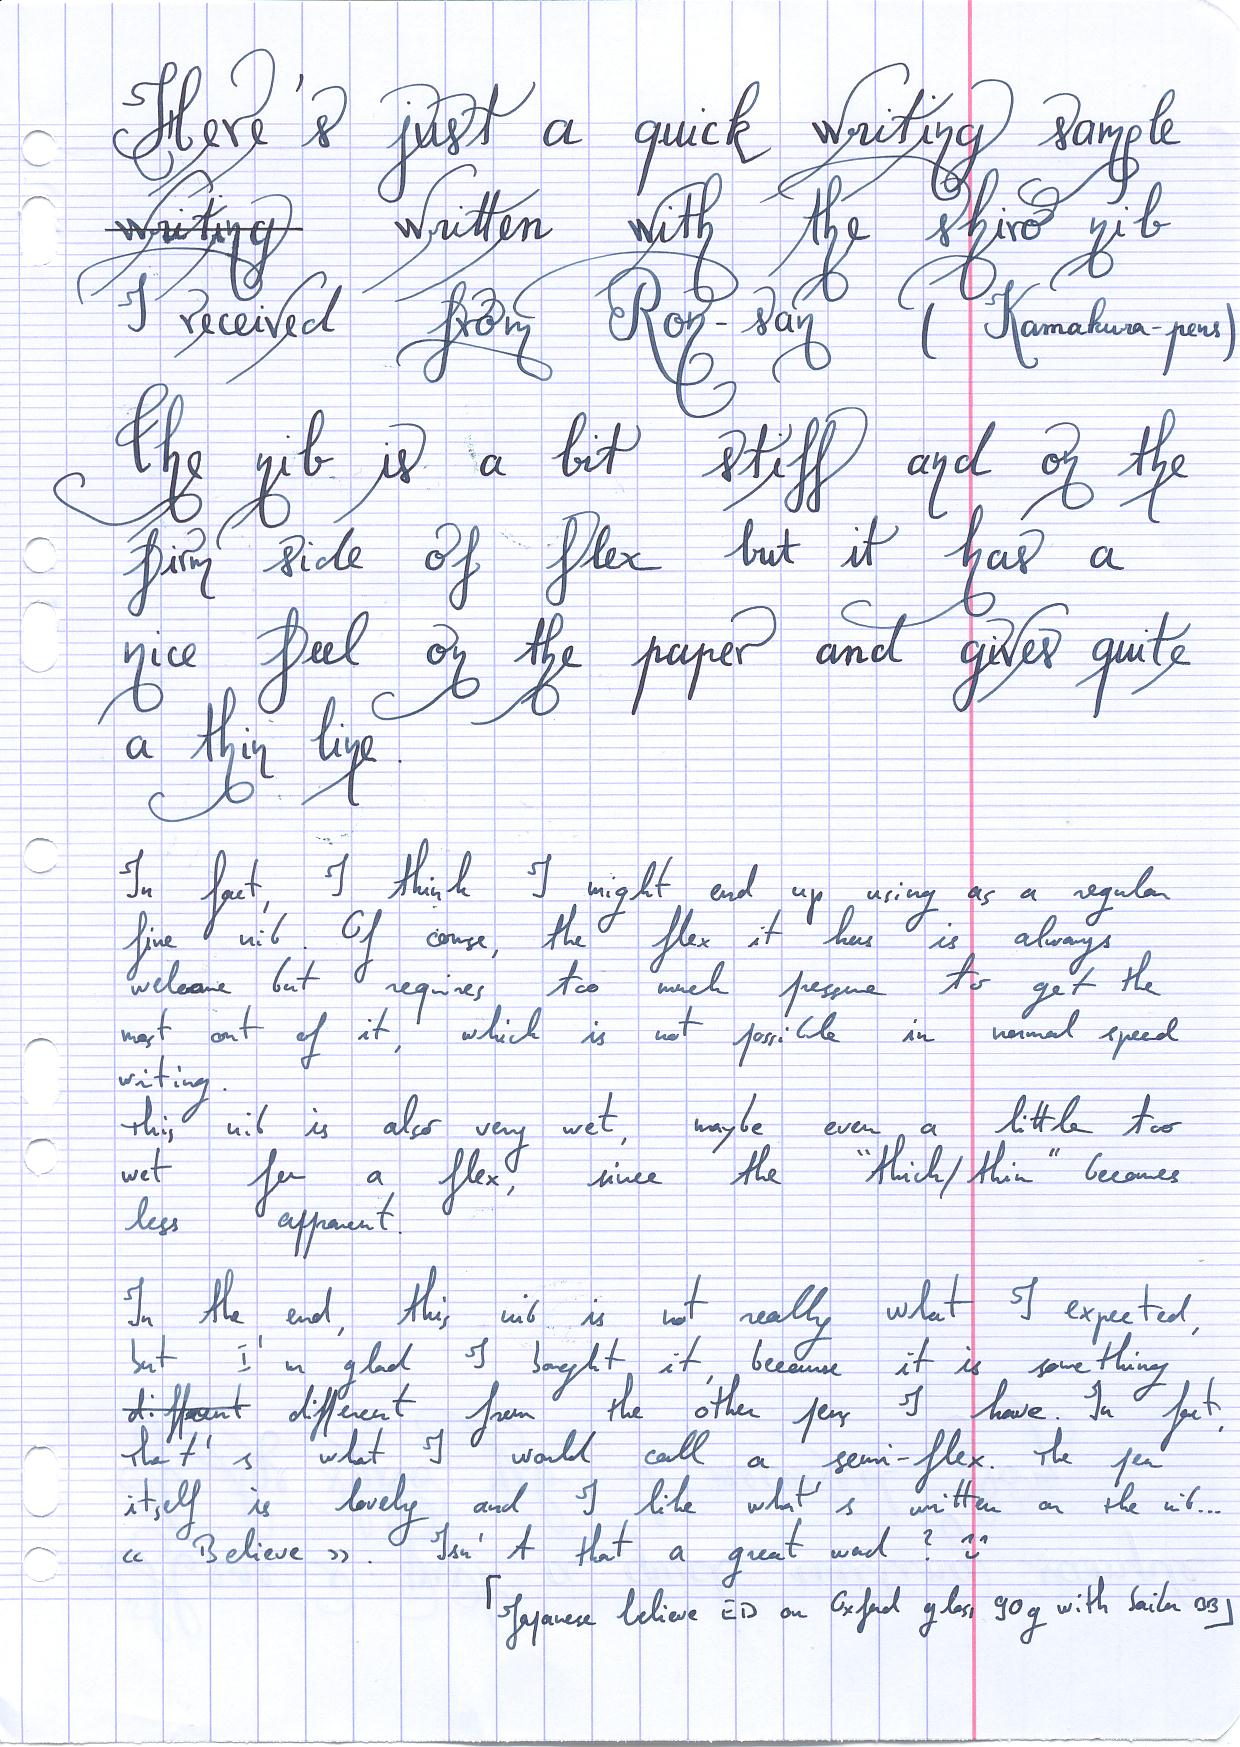 Here's just a quick writing sample
writing written with the shiro nib
I received from Ron-san (Kamakura-pens)
The nib is a bit stiff and on the
firm side of flex but it has a
nice feel on the paper and gives quite
a thin line.
In fact, I think I might end up using as a regular
fine nib. Of course, the flex it has is always
welcome but requires too much pressure to get the
most out of it, which is not possible in normal speed
writing.
This nib is also very wet, maybe even a little too
wet for a flex, since the "thick/thin" becomes
less apparent.
In the end, this nib is not really what I expected,
but I'm glad I bought it, because it is something
different different from the other pens I have. In fact,
that's what I would call a semi-flex. The pen
itself is lovely and I like what's written on the nib...
« Believe ». Isn't that a great word? :)
「Japanese believe ED on Oxford glass 90g with Sailor BB」